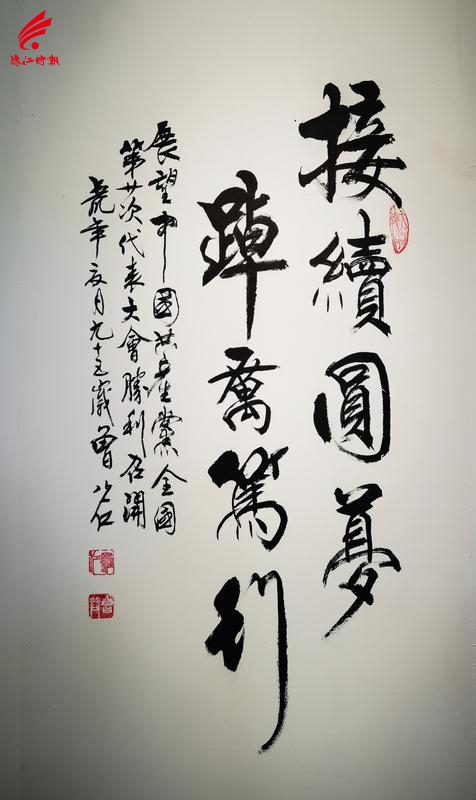 珠江時報
接續圓夢
踔厲篤行
展望中國共產黨全國
第廿次代表大會勝利召開
虎年亥月九十五歲曾